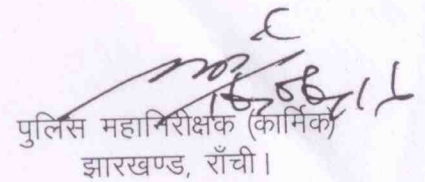 पुलिस महानिरीक्षक (कार्मिक)
झारखण्ड, राँची।